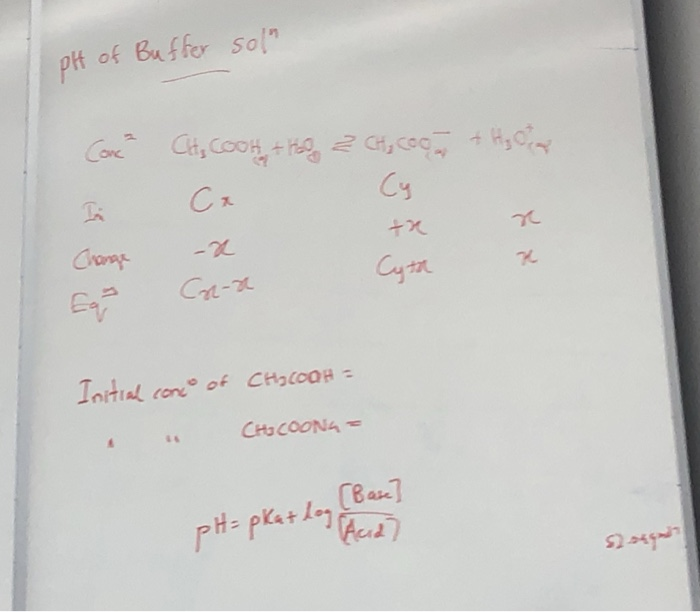 pH of Buffer solⁿ
Concⁿ CH₃COOH(aq) + H₂O(l) ⇌ CH₃COO⁻(aq) + H₃O⁺(aq)
In Cx Cy
Change -x +x x
Eqⁿ Cx-x Cy+x x
Initial concⁿ of CH₃COOH =
" " CH₃COONa =
pH = pKa + log [Base]/[Acid]